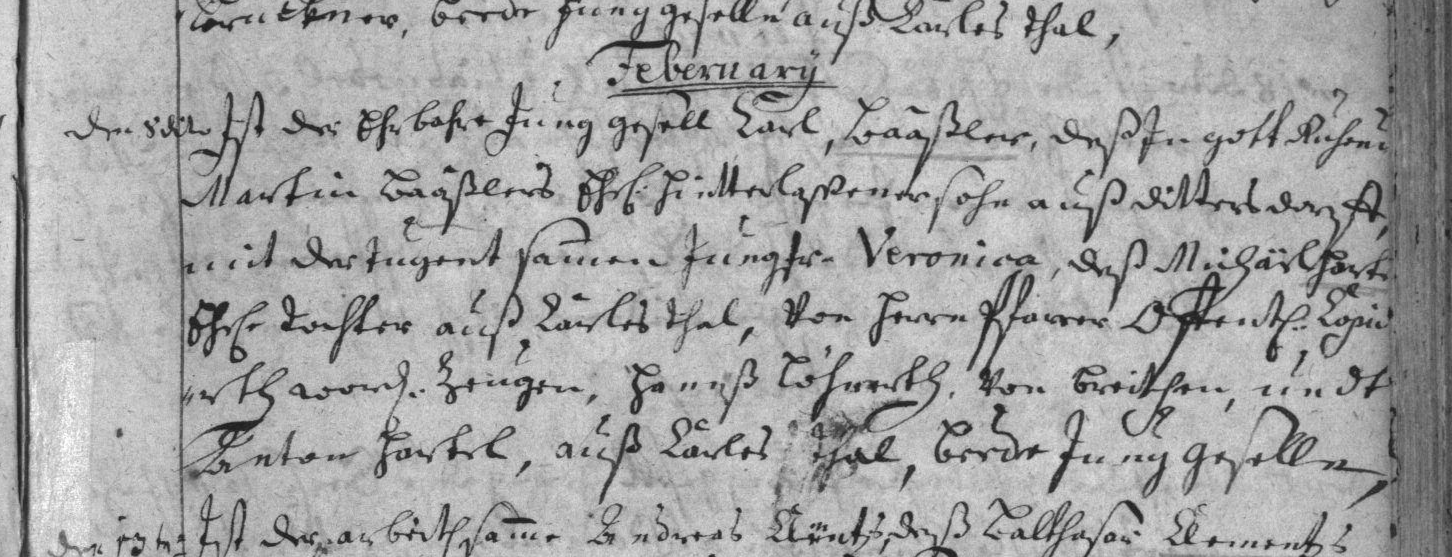 beede Jung geselln auß Carles thal,
Februarÿ
den 8 dito Ist der Ehrbahre Jung gesell Carl, Baaßler, deß In gott Ruhend
Martin Baaßlers Ehel: hintterlaßener sohn auß dittersdorff,
mit der tugent samen Jungfr. Veronica, deß Michäel Hartl
Ehel: tochter auß Carles thal, Von Herrn Pfarrer Offentl: Copu
irth word: Zeugen, Hannß Von Breithen, undt
Anton Hartel, auß Carles thal, beede Jung geselln,
Ist der arbeithsame Andreas deß Balthasar Clements